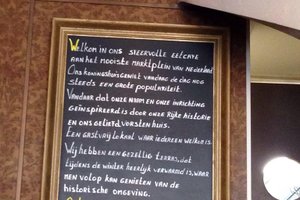 Welkom in ons sfeervolle eetcafe
aan het mooiste marktplein van Nederland
Ons koningshuis geniet vandaag de dag nog
steeds een grote populariteit.
Vandaar dat onze naam en onze inrichting
geïnspireerd is door onze rijke historie
en ons geliefd vorstenhuis.
Een gastvrij lokaal waar iedereen welkom is.
Wij hebben een gezellig terras, dat
tijdens de winter heerlijk verwarmd is, waar
men volop kan genieten van de
historische omgeving.